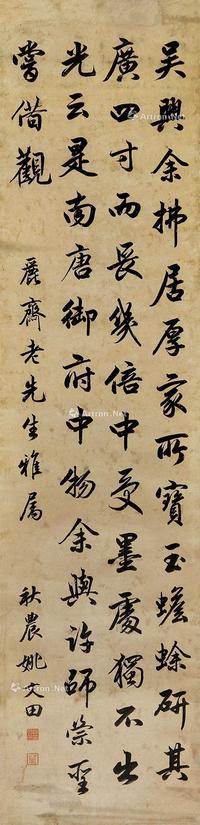 吳興余拂居厚家所寶玉蟾蜍研其
廣四寸而長幾倍中受墨處獨不出
光云是南唐御府中物余與許師崇聖
嘗借觀
麗齋老先生雅屬
秋農姚文田